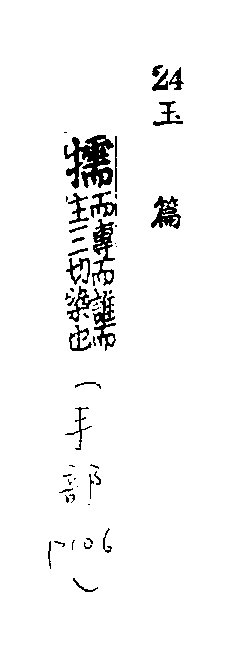 24
玉篇
擩
而專而誰而
主三切染也
(手部
p106)